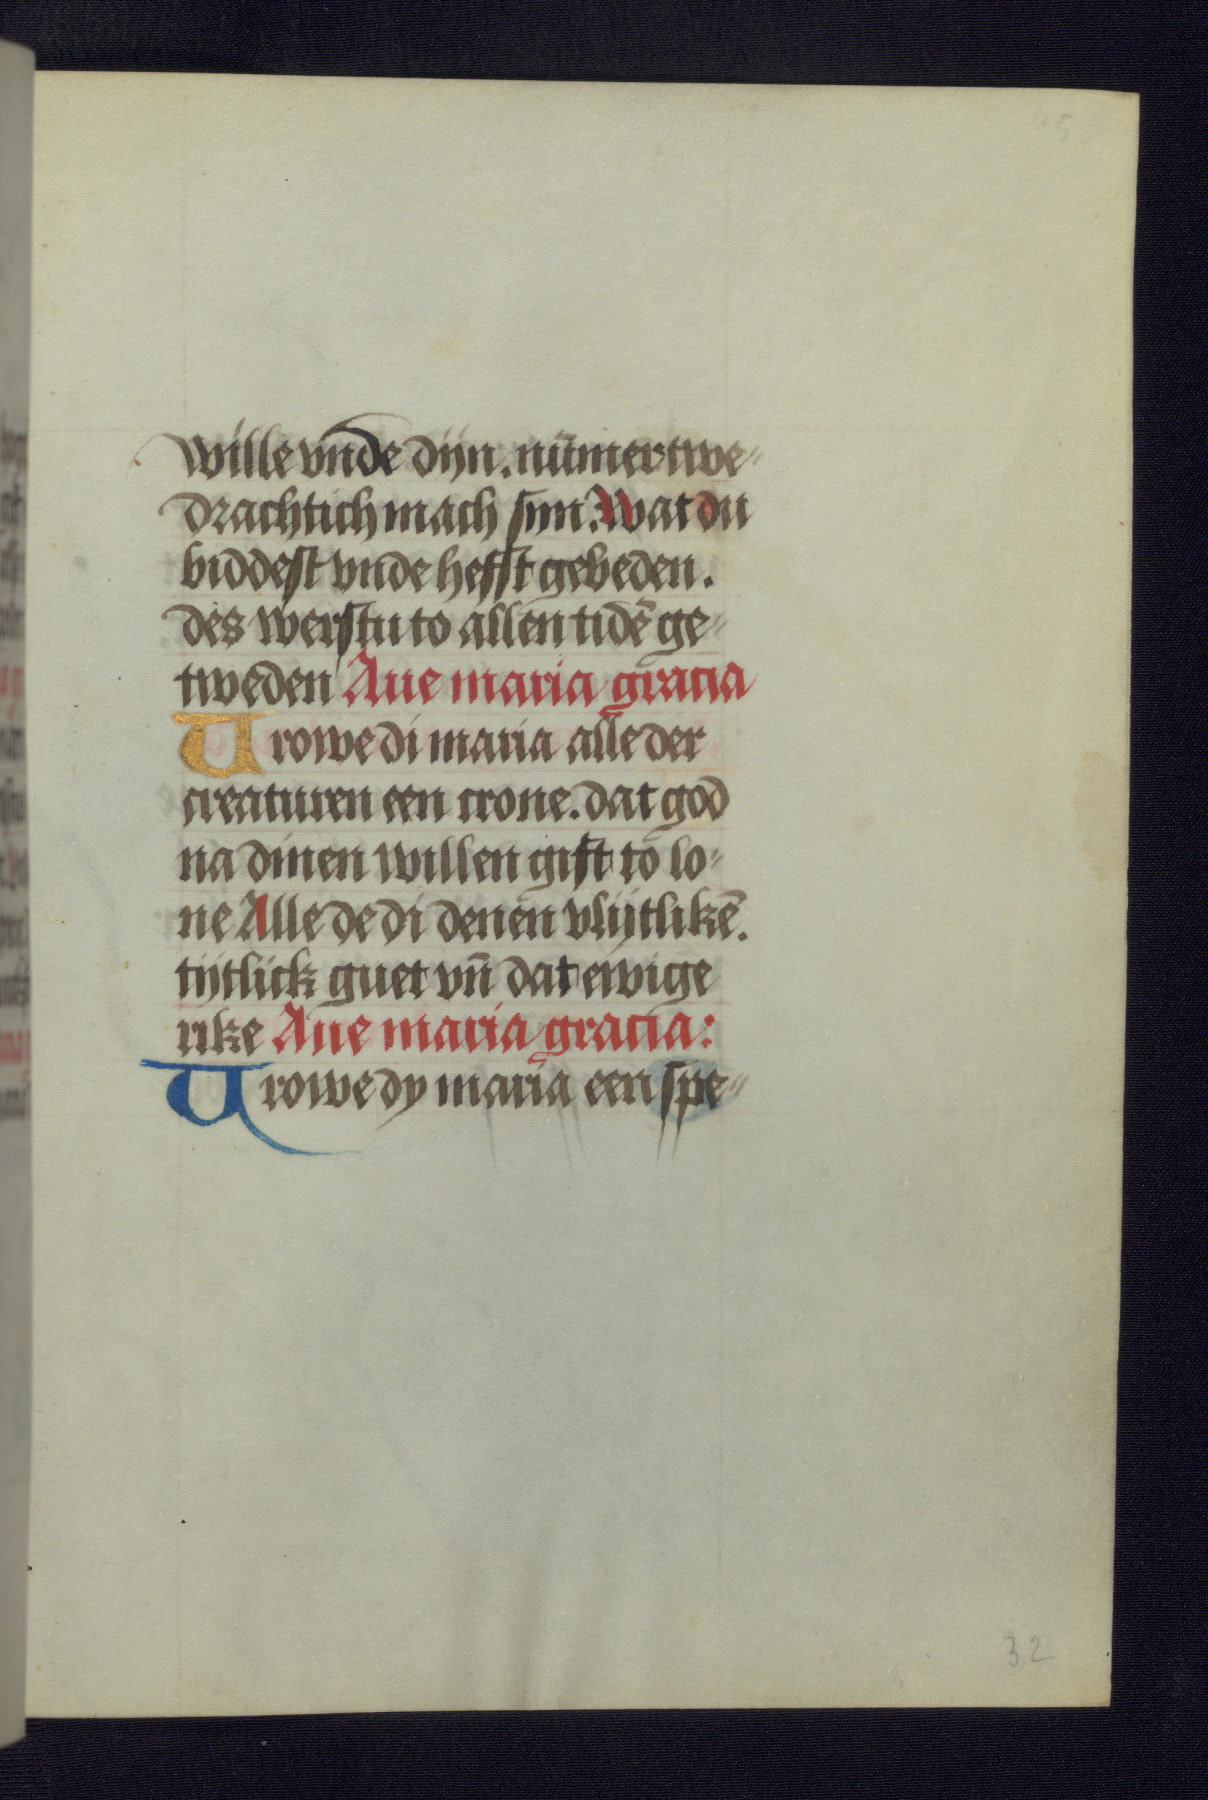 wille vnde dijn. nūmer twe-
drachtich mach sijn. Wat du
biddest vnde hefst gebeden.
des werstu to allen tidē ge-
tweden Aue maria gracia
Vrowe di maria alle der
creaturen een crone. dat god
na dinen willen gift to lo-
ne Alle de di denen vlijtlikē.
tijtlick guet vn̄ dat ewige
rike Aue maria gracia:
Vrowe dy maria een spe-
32